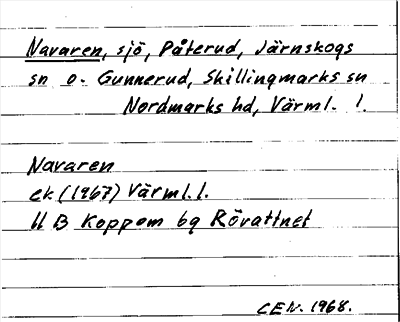 Navaren, sjö, Påterud, Järnskogs
sn o. Gunnerud, Skillingmarks sn
Nordmarks hd, Värml. l.
Navaren
ek (1967) Värml. l.
11 B Koppom bg Rövattnet
CEN. 1968.